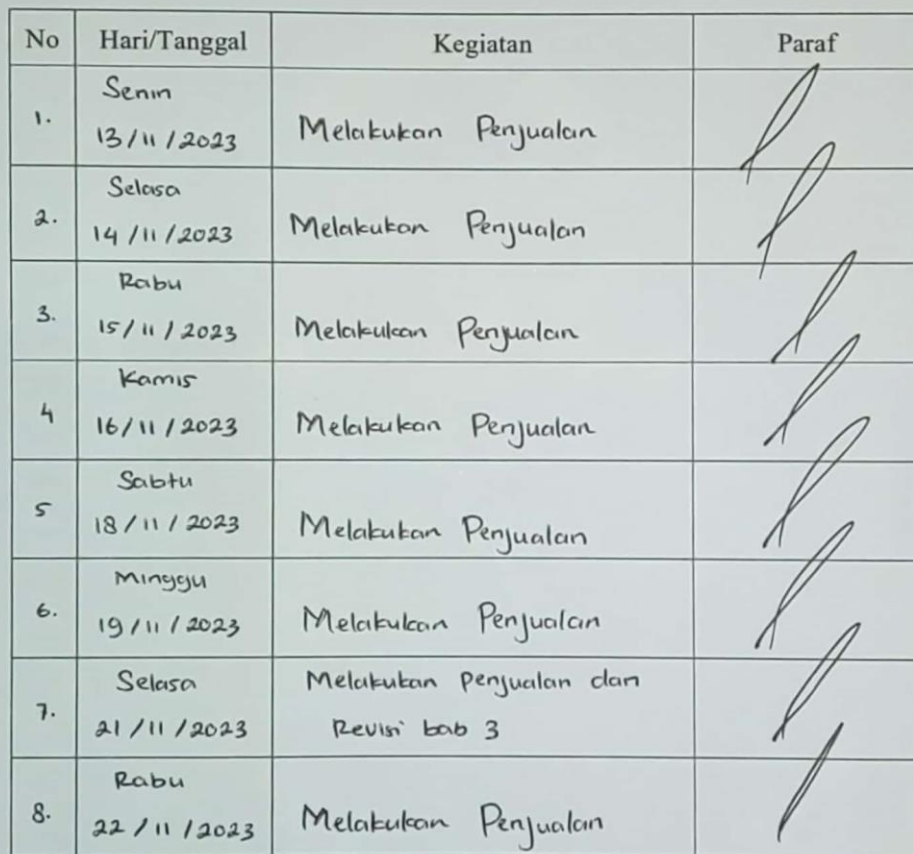 No Hari/Tanggal Kegiatan Paraf
Senin
1.
13/11/2023 Melakukan Penjualan
Selasa
2.
14/11/2023 Melakukan Penjualan
Rabu
3.
15/11/2023 Melakukan Penjualan
Kamis
4
16/11/2023 Melakukan Penjualan
Sabtu
5
18/11/2023 Melakukan Penjualan
Minggu
6.
19/11/2023 Melakukan Penjualan
Selasa Melakukan penjualan dan
7.
21/11/2023 Revisi bab 3
Rabu
8.
22/11/2023 Melakukan Penjualan